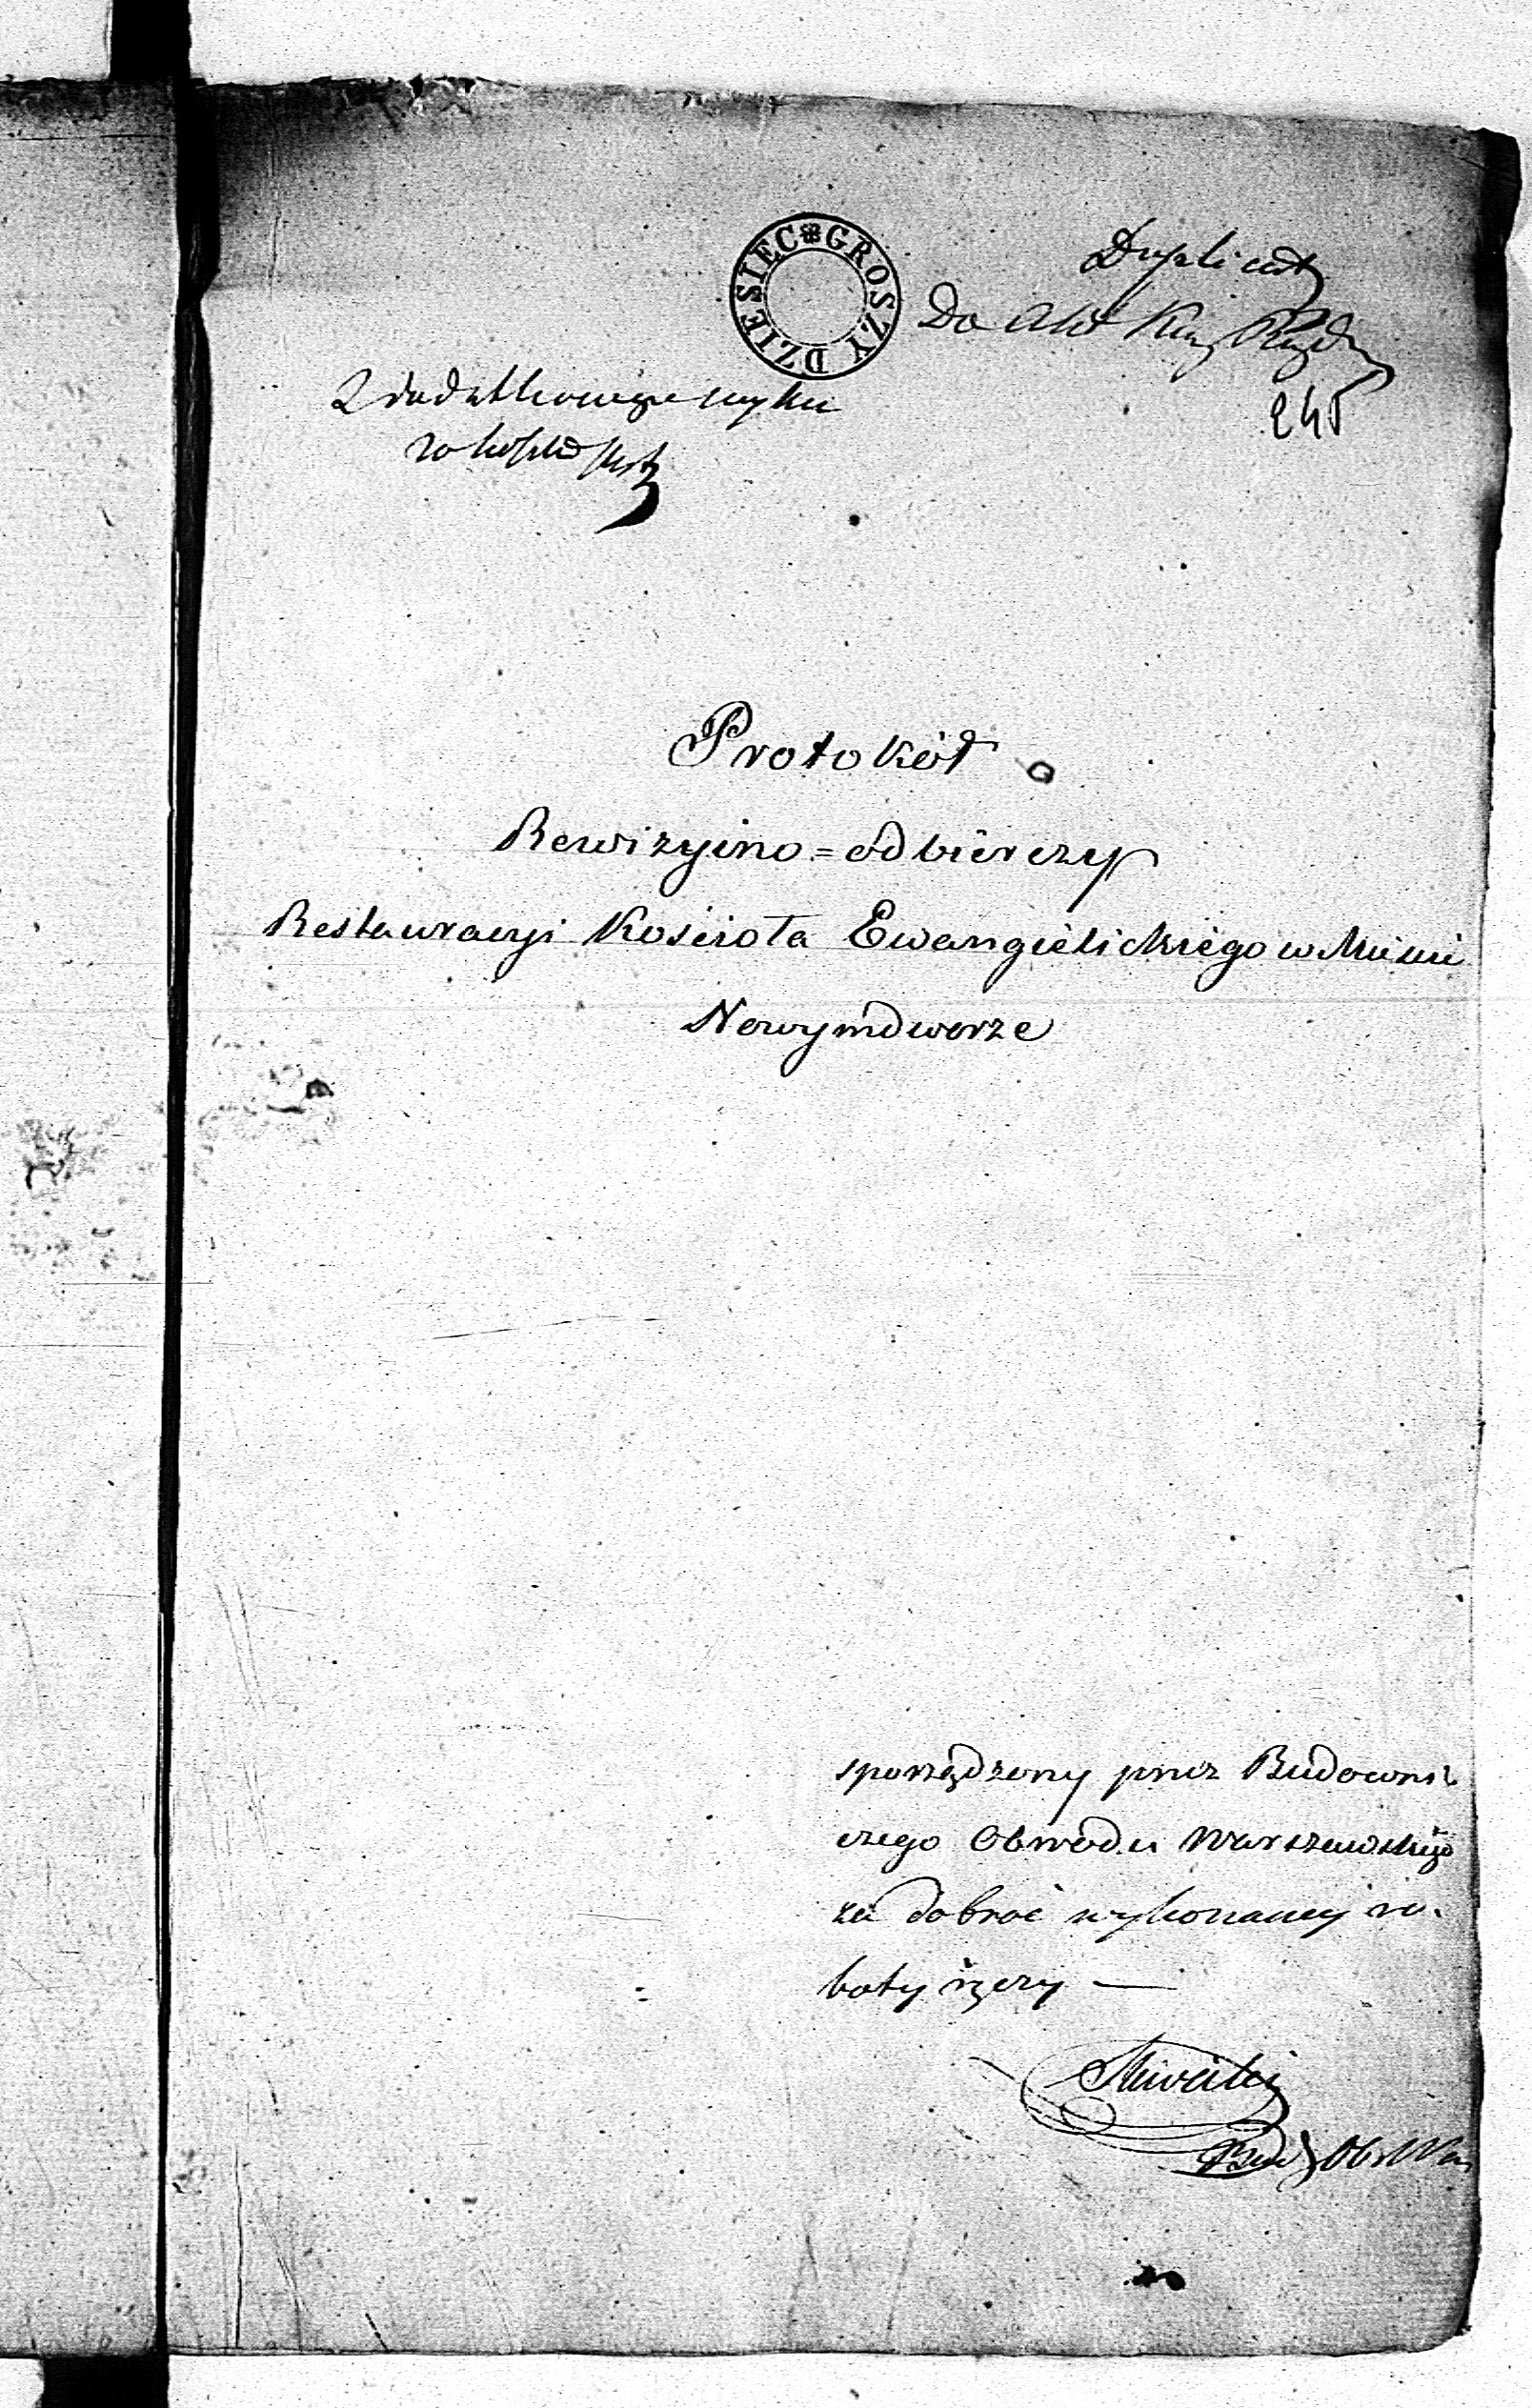 GROSZY DZIESIĘC
Duplicat
Do Akt
245
Z dodatkowego
Protokół
Rewizyino=odbierczy
Restauracyi Kościoła Ewangielickiego w Mieście
Nowymdworze
sporządzony przez Budowni
czego Obwodu Warszawskiego
za dobroć wykonaney ro-
boty ręczy —
Bud Ob War